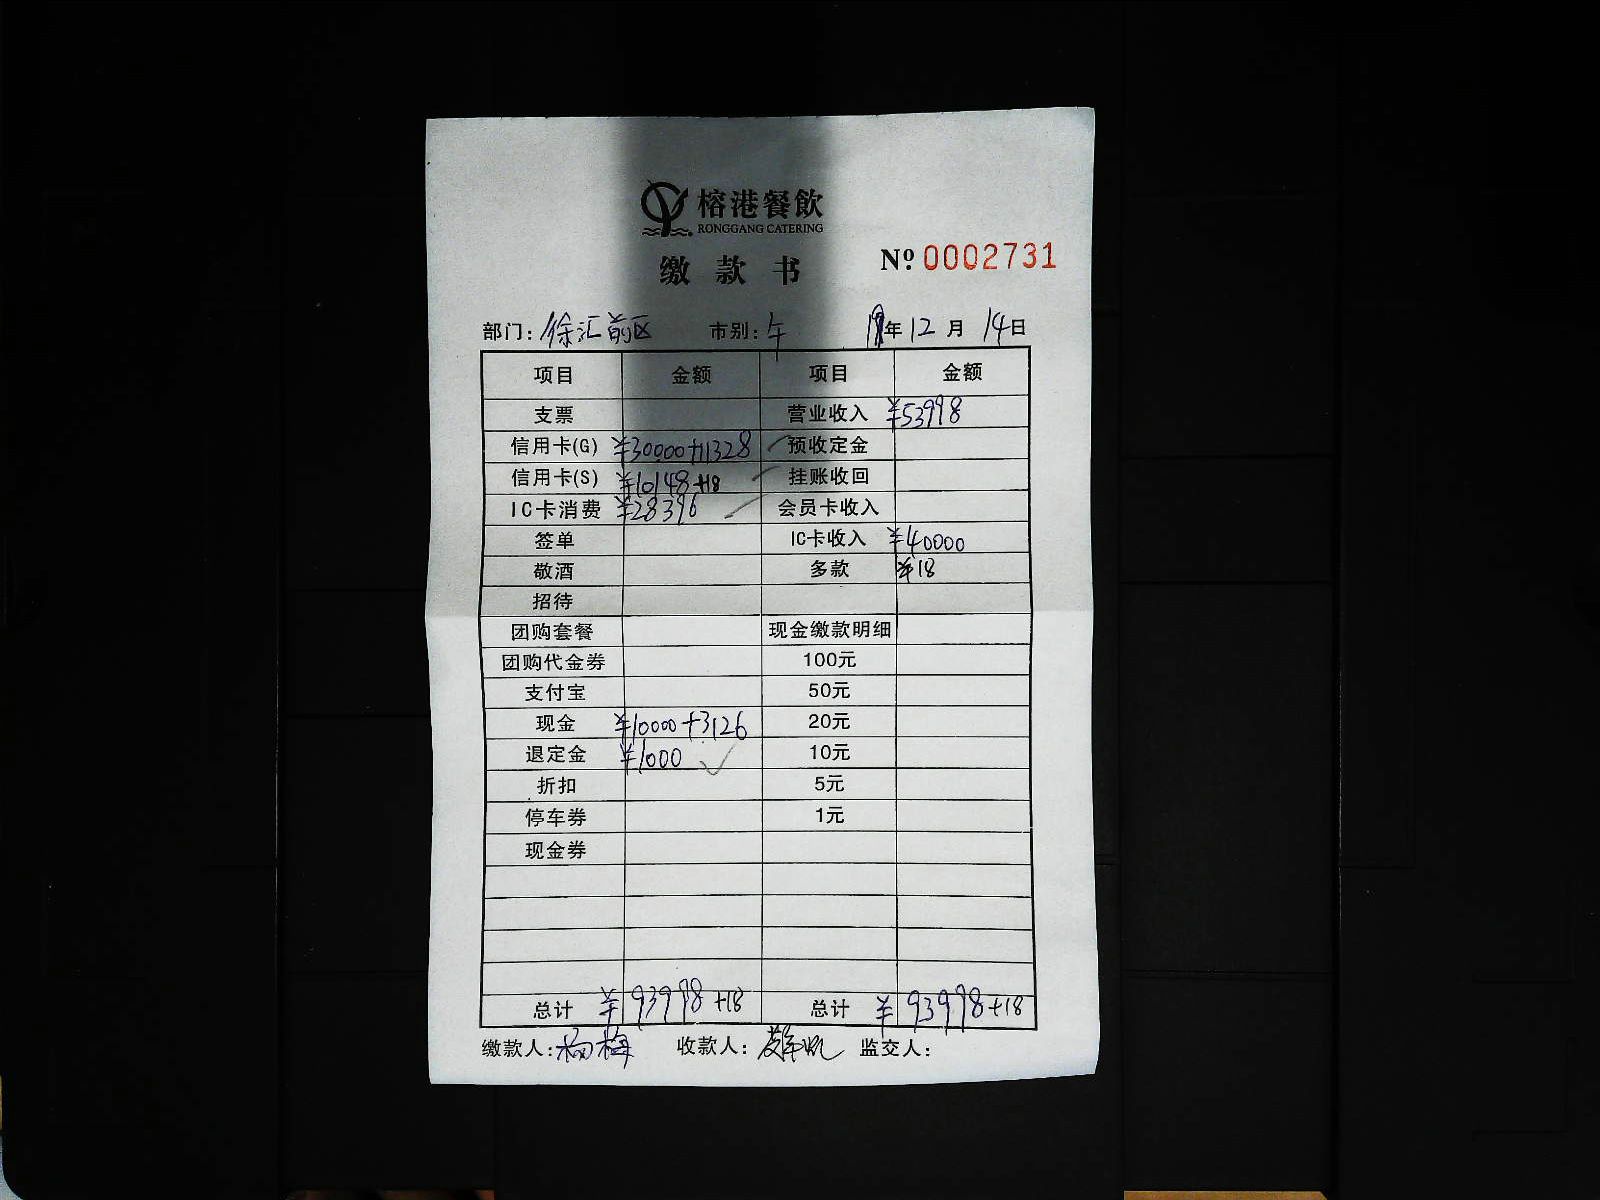 榕港餐飲
RONGGANG CATERING
缴款书 Nº 0002731
部门: 徐汇前区 市别: 午 19年12月14日
项目 金额 项目 金额
支票 营业收入 ¥53998
信用卡(G) ¥30000+11328 预收定金
信用卡(S) ¥10148+18 挂账收回
IC卡消费 ¥28396 会员卡收入
签单 IC卡收入 ¥40000
敬酒 多款 ¥18
招待
团购套餐 现金缴款明细
团购代金券 100元
支付宝 50元
现金 ¥10000+3126 20元
退定金 ¥1000 10元
折扣 5元
停车券 1元
现金券
总计 ¥93998+18 总计 ¥93998+18
缴款人: 杨梅 收款人: 监交人: